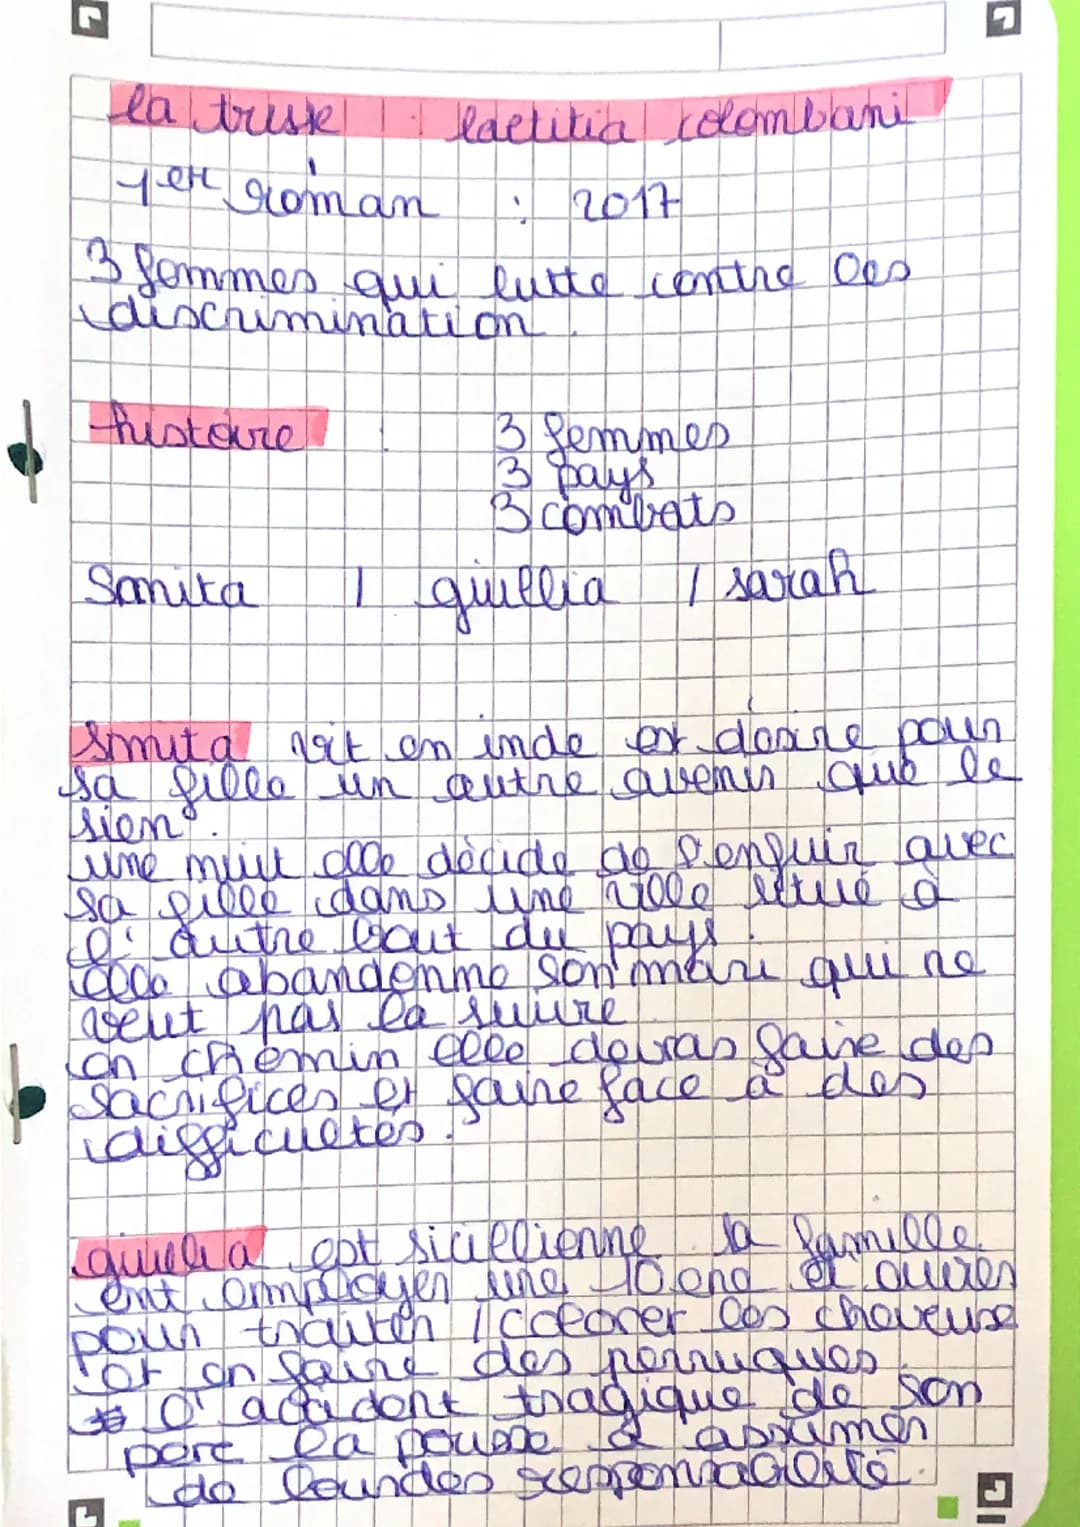 la tresse : laetitia colombani
1er roman : 2017
3 femmes qui lutte contre les
discrimination.
histoire : 3 femmes
3 pays
3 combats
Smita / giullia / sarah
Smita vit en inde et désire pour
sa fille un autre avenir que le
sien.
une nuit elle décide de s'enfuir avec
sa fille dans une ville situé à
l'autre bout du pays.
elle abandonne son mari qui ne
veut pas la suivre
en chemin elle devras faire des
sacrifices et faire face à des
difficultés.
giulia est sicillienne. sa famille
ent employer une 10ene d'ouvires
pour traiter / colorer les cheveuse
et en faire des perruques.
l'accident tragique de son
pere la pousse à assumer
de lourdes responsabilité.